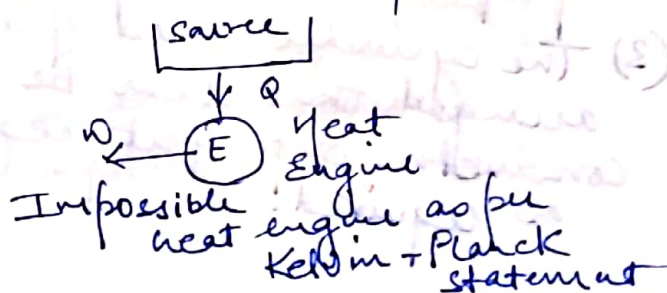 Source
Q
W
E
Heat
Engine
Impossible
heat engine as per
Kelvin - Planck
statement